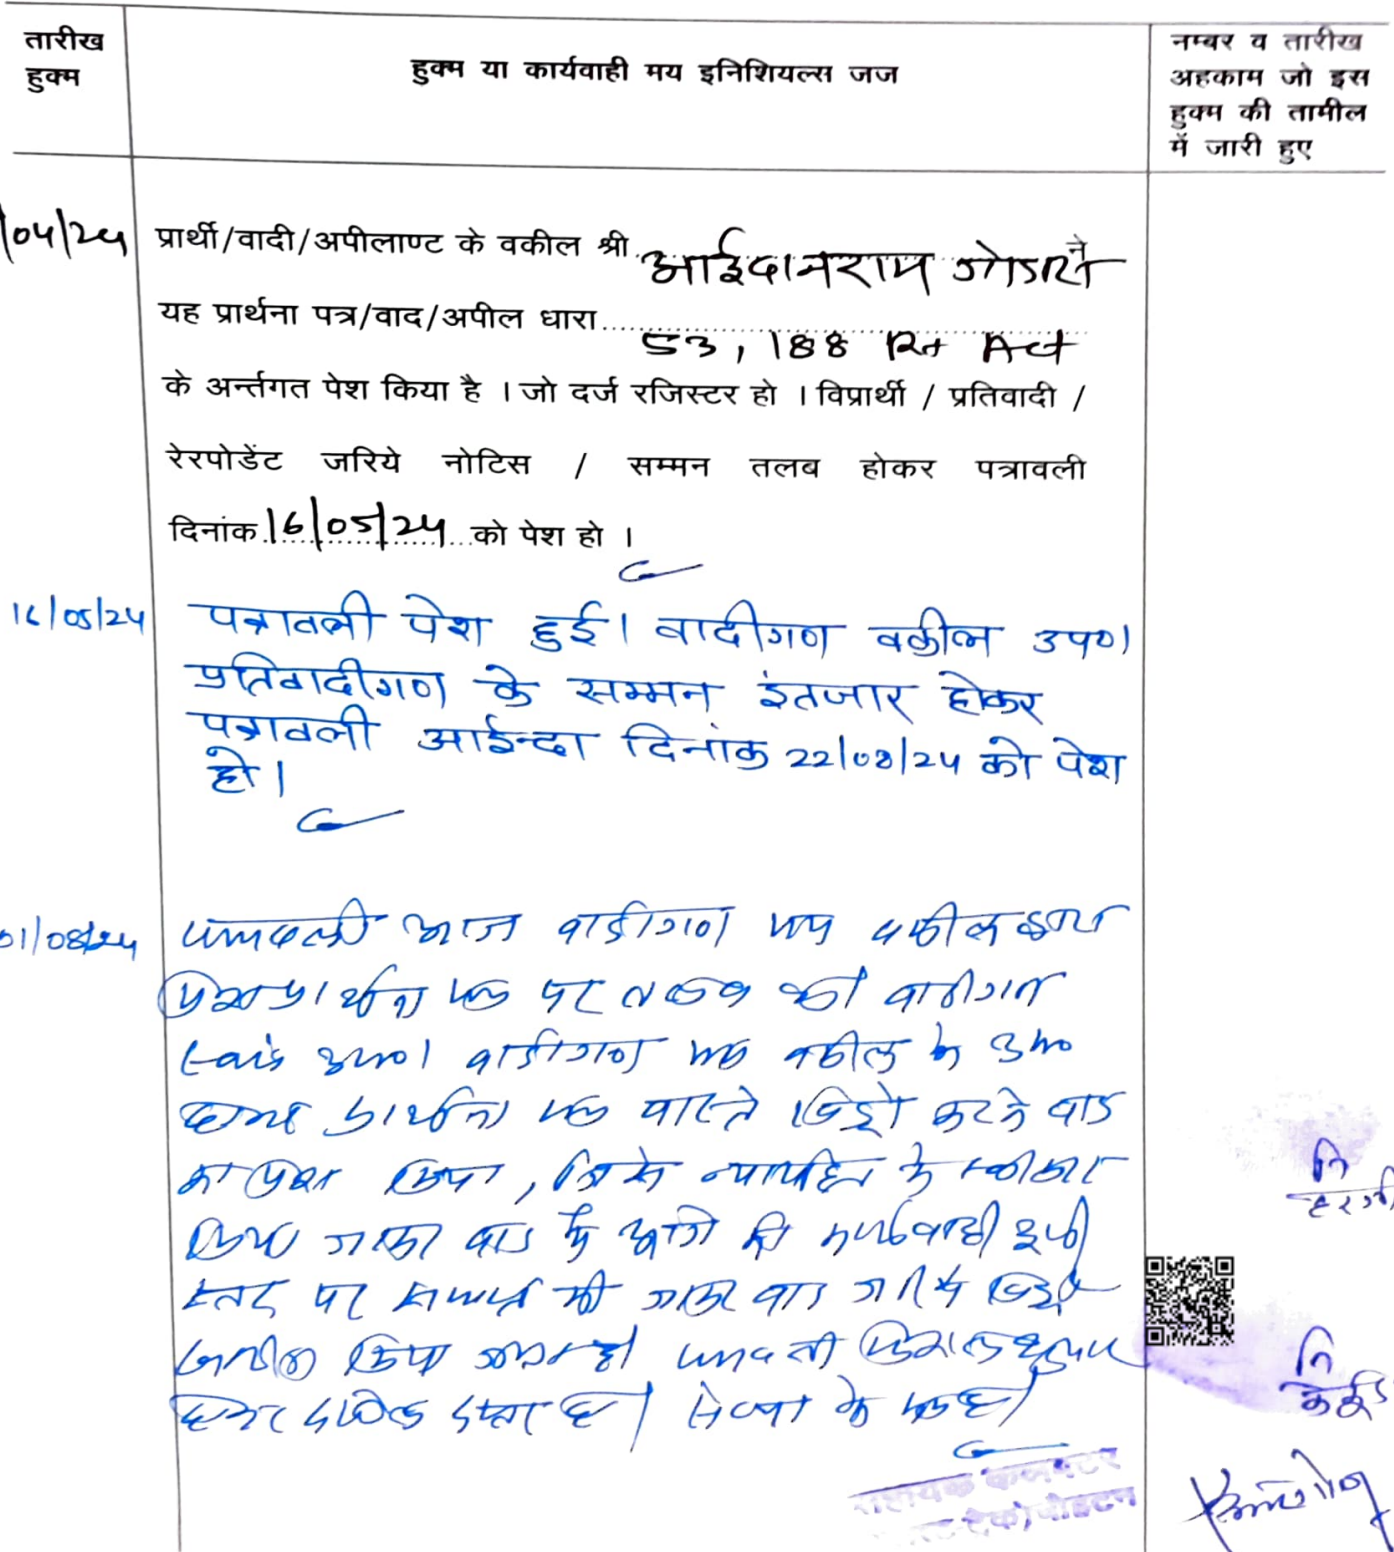 तारीख
हुक्म
हुक्म या कार्यवाही मय इनिशियल्स जज
नम्बर व तारीख
अहकाम जो इस
हुक्म की तामील
में जारी हुए
/04/24 प्रार्थी/वादी/अपीलाण्ट के वकील श्री आईदानराम ने
यह प्रार्थना पत्र/वाद/अपील धारा 53, 188 Rt Act
के अर्न्तगत पेश किया है । जो दर्ज रजिस्टर हो । विप्रार्थी / प्रतिवादी /
रेरपोडेंट जरिये नोटिस / सम्मन तलब होकर पत्रावली
दिनांक 16/05/24 को पेश हो ।
16/05/24 पत्रावली पेश हुई। वादीगण वकील उप0।
प्रतिवादीगण के सम्मन इंतजार होकर
पत्रावली आईन्दा दिनांक 22/08/24 को पेश
हो।
01/08/24 पत्रावली आज वादीगण मय वकील द्वारा
प्रार्थना पत्र पर तलब की वादीगण
उप0। वादीगण मय वकील के उप0
प्रार्थना पत्र वास्ते विड्रो करने वाद
का पेश किया, के न्यायहित में स्वीकार
किया जाकर वाद में आगे की कार्यवाही इसी
स्तर पर समाप्त की जाकर वाद विड्रो
किया जाता है। पत्रावली
दाखिल दफ्तर हो।
सहायक कलक्टर